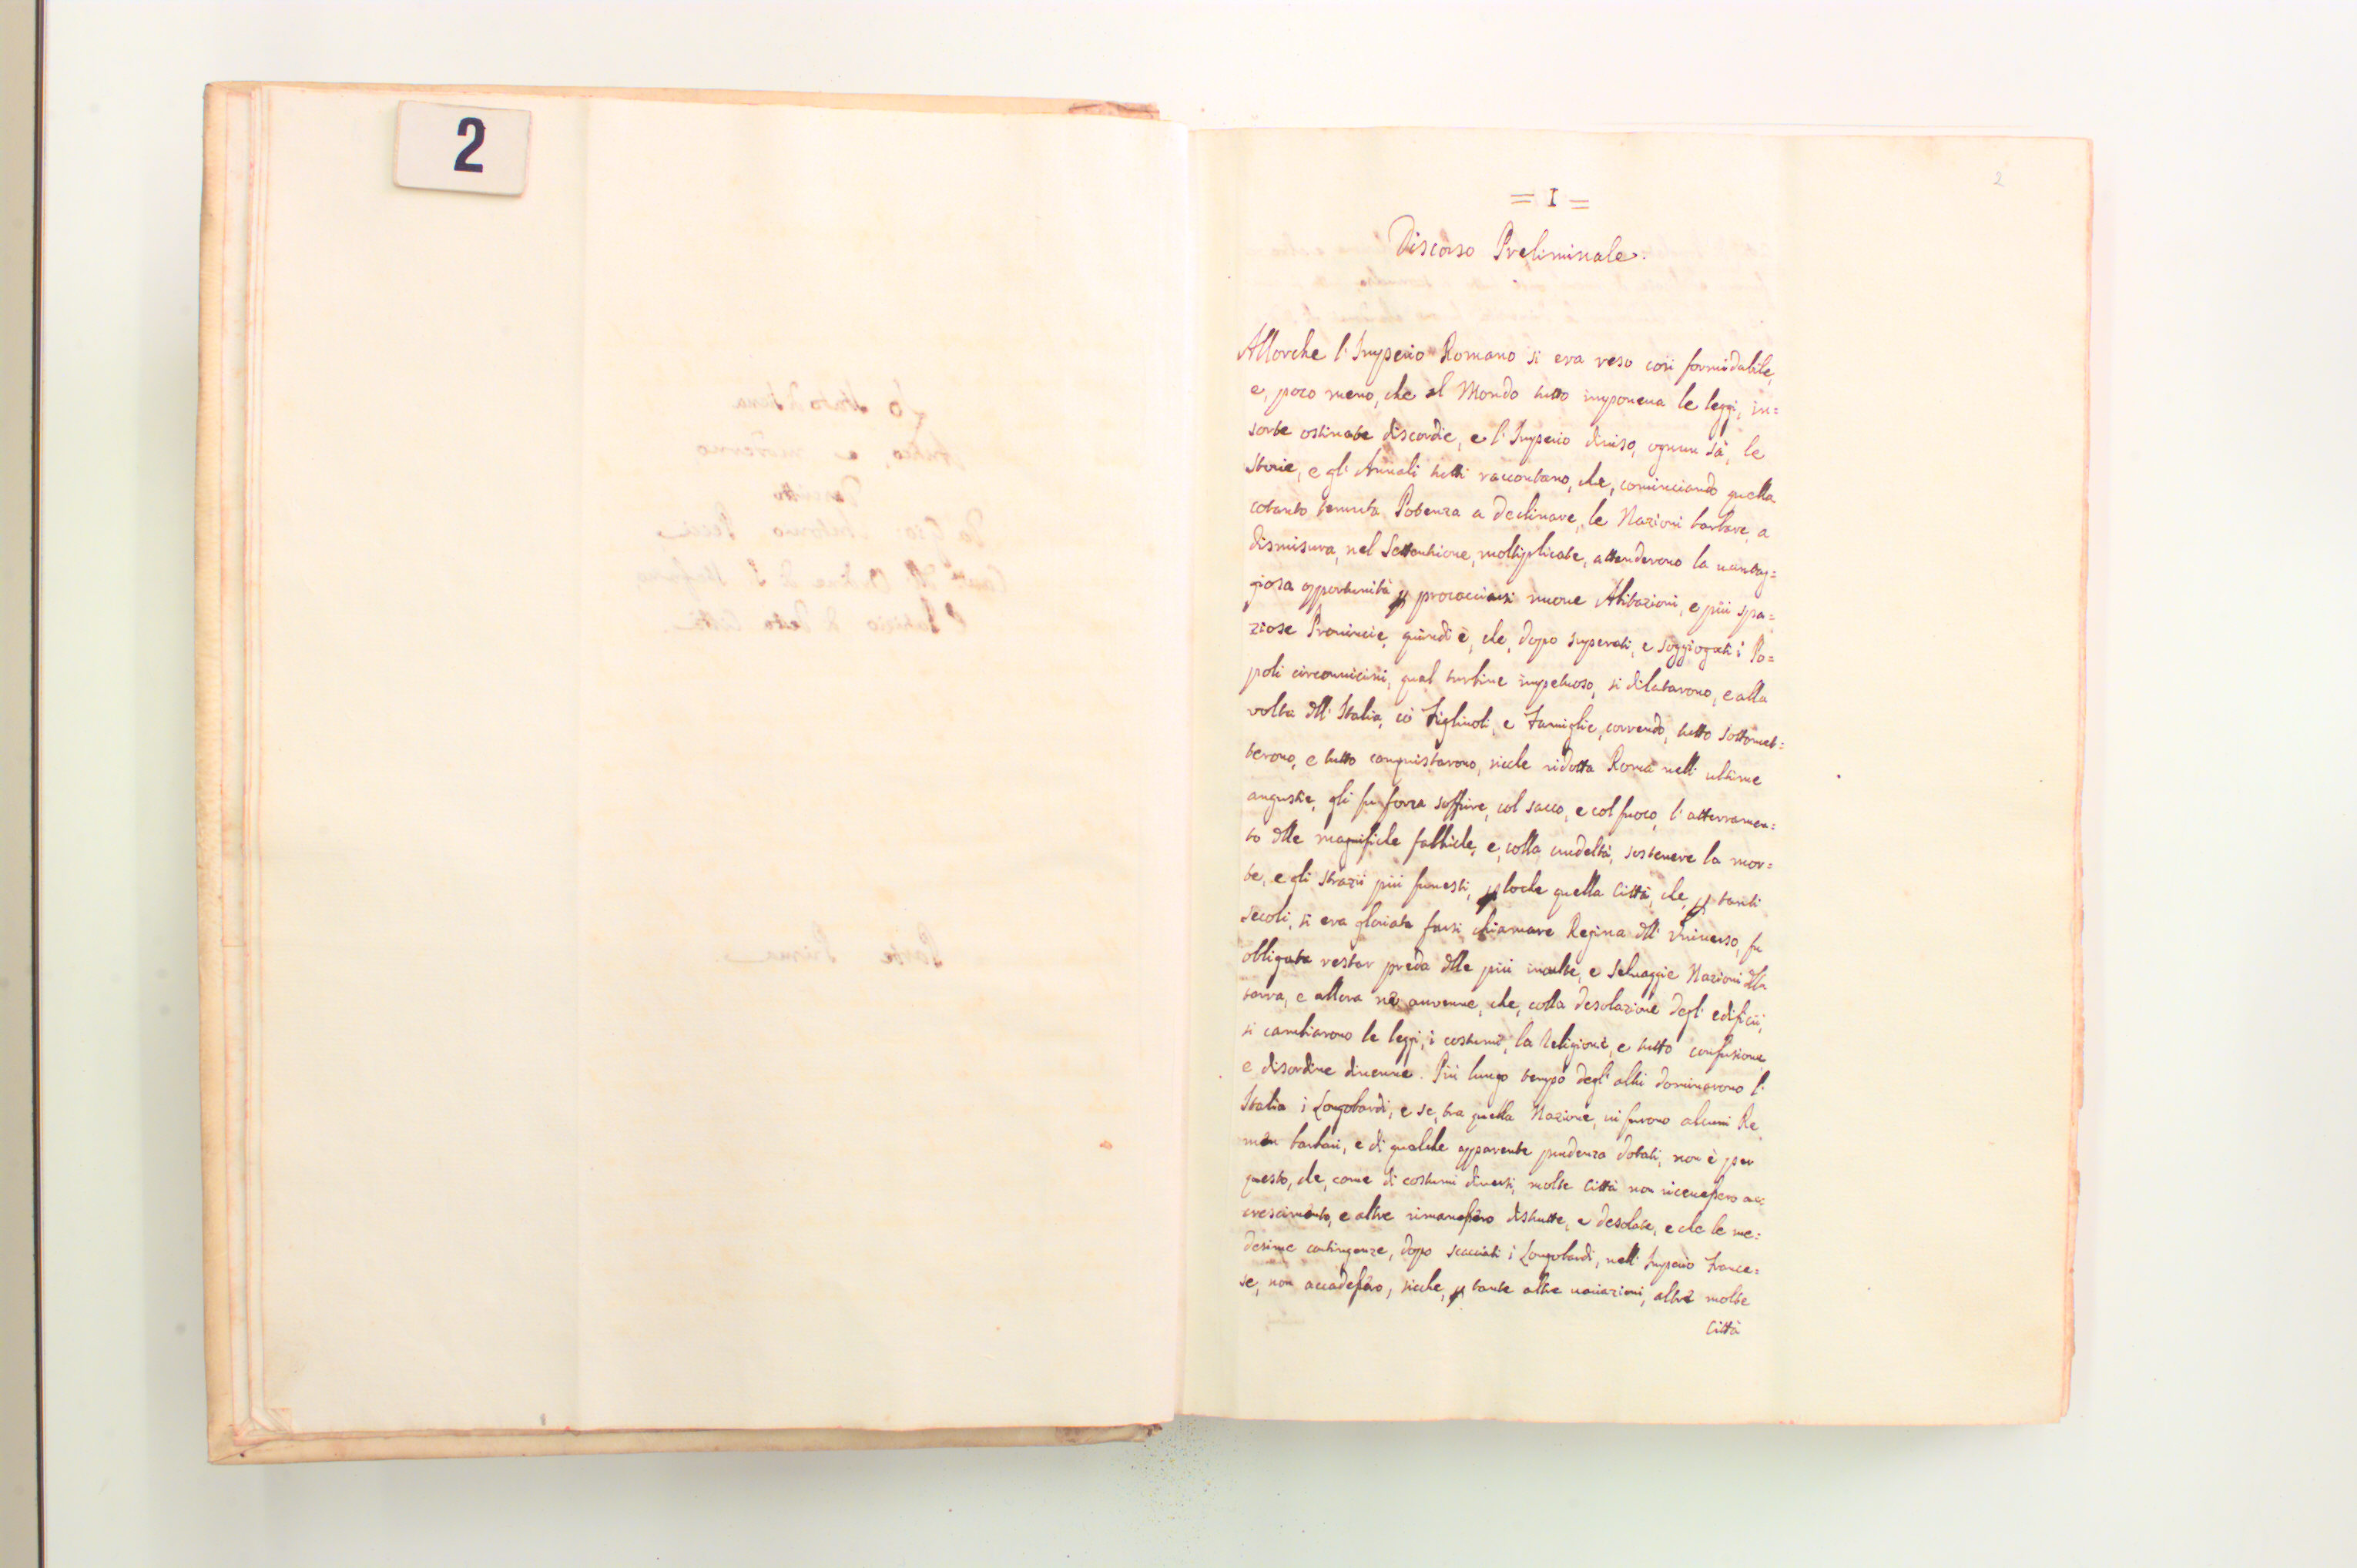 2
2
= I =
Discorso Preliminale.
Allorche l'Imperio Romano si era reso così formidabile,
e, poco meno, che al Mondo tutto imponeua le leggi, in=
sorte ostinate discordie, e l'Imperio diuiso, ognun sà, le
storie, e gl'Annali tutti raccontano, che, cominciando quella
cotanto temuta Potenza a declinare, le Nazioni barbare, a
dismisura, nel Settentrione, moltiplicate, attenderono la uantag=
giosa opportunità p procacciarsi nuoue Abitazioni, e più spa=
ziose Prouincie, quindi è, che, dopo superati, e soggiogati i Po=
poli circonuicini, qual turbine impetuoso, si dilatarono, e alla
volta dell'Italia, cò Figliuoli, e Famiglie, correndo, tutto sottomet=
terono, e tutto conquistarono, sicche ridotta Roma nell'ultime
angustie, gli fu forza soffrire, col sacco, e col fuoco, l'atterramen=
to dlle magnifiche fabbriche, e, colla crudeltà, sostenere la mor=
te, e gli strazii più funesti, p loche quella Città, che, p tanti
secoli, si era gloriata farsi chiamare Regina dll'Vniuerso, fu
obligata restar preda dlle più inculte, e seluaggie Nazioni dlla
terra, e allora ne auuenne, che, colla desolazione degl'edificii,
si cambiarono le leggi, i costumi, la Religione, e tutto confusione,
e disordine diuenne. Più lungo tempo degl'altri dominarono l'
Italia i Longobardi, e se, tra quella Nazione, ui furono alcuni Re
men barbari, e di qualche apparente prudenza dotati, non è per
questo, che, come di costumi diuersi, molte Città non riceuessero ac=
crescimento, e altre rimanessero distrutte, e desolate, e che le me=
desime contingenze, dopo scacciati i Longobardi, nell'Imperio France=
se, non accadessero, sicche, p tante altre uariazioni, altre molte
Città